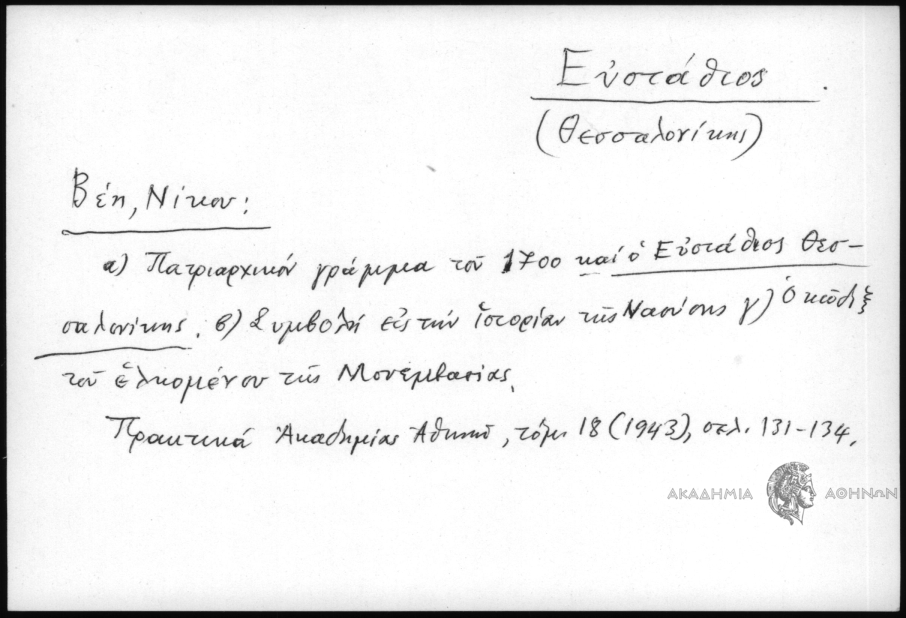 Εὐστάθιος.
(Θεσσαλονίκης)
Βέη, Νίκου:
α) Πατριαρχικόν γράμμα τοῦ 1700 καί ὁ Εὐστάθιος Θεσ-
σαλονίκης. β) Συμβολή εἰς τήν ἱστορίαν τῆς Ναούσης γ) Ὁ κῶδιξ
τοῦ ἑλκομένου τῆς Μονεμβασίας.
Πρακτικά Ἀκαδημίας Ἀθηνῶν, τόμ. 18 (1943), σελ. 131-134.
ΑΚΑΔΗΜΙΑ ΑΘΗΝΩΝ